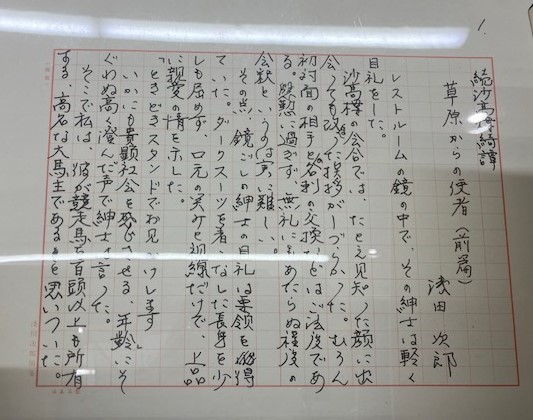 1.
続沙高樓綺譚
草原からの使者(前篇)
浅田次郎
レストルームの鏡の中で、その紳士は軽く
目礼をした。
沙高樓の会合では、たとえ見知った顔に出
会っても改った挨拶がしづらかった。むろん
初対面の相手と名刺の交換などはご法度であ
る。慇懃に過ぎず、無礼にもあたらぬ程度の
会釈というのは実に難しい。
その点、鏡ごしの紳士の目礼は要領を獲得
ていた。ダークスーツを着こなした長身を少
しも屈めず、口元の笑みと視線だけで、上品
に親愛の情を示した。
「ときどきスタンドでお見かけします」
いかにも貴顕社会を感じさせる、年齢にそ
ぐわぬ高く澄んだ声で紳士は言った。
そこで私は、彼が競走馬を百頭以上も所有
する、高名な大馬主であることを思いついた。